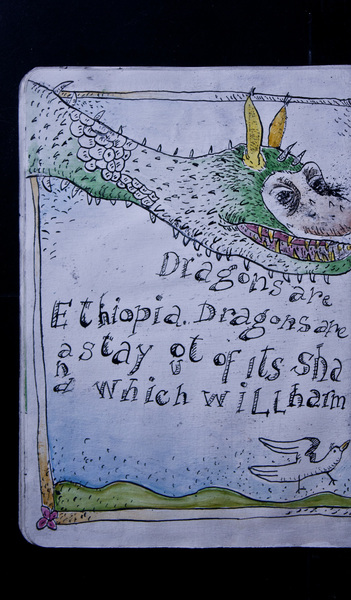 Dragons are
Ethiopia. Dragons are
and stay out of its sha
which wiLL harm